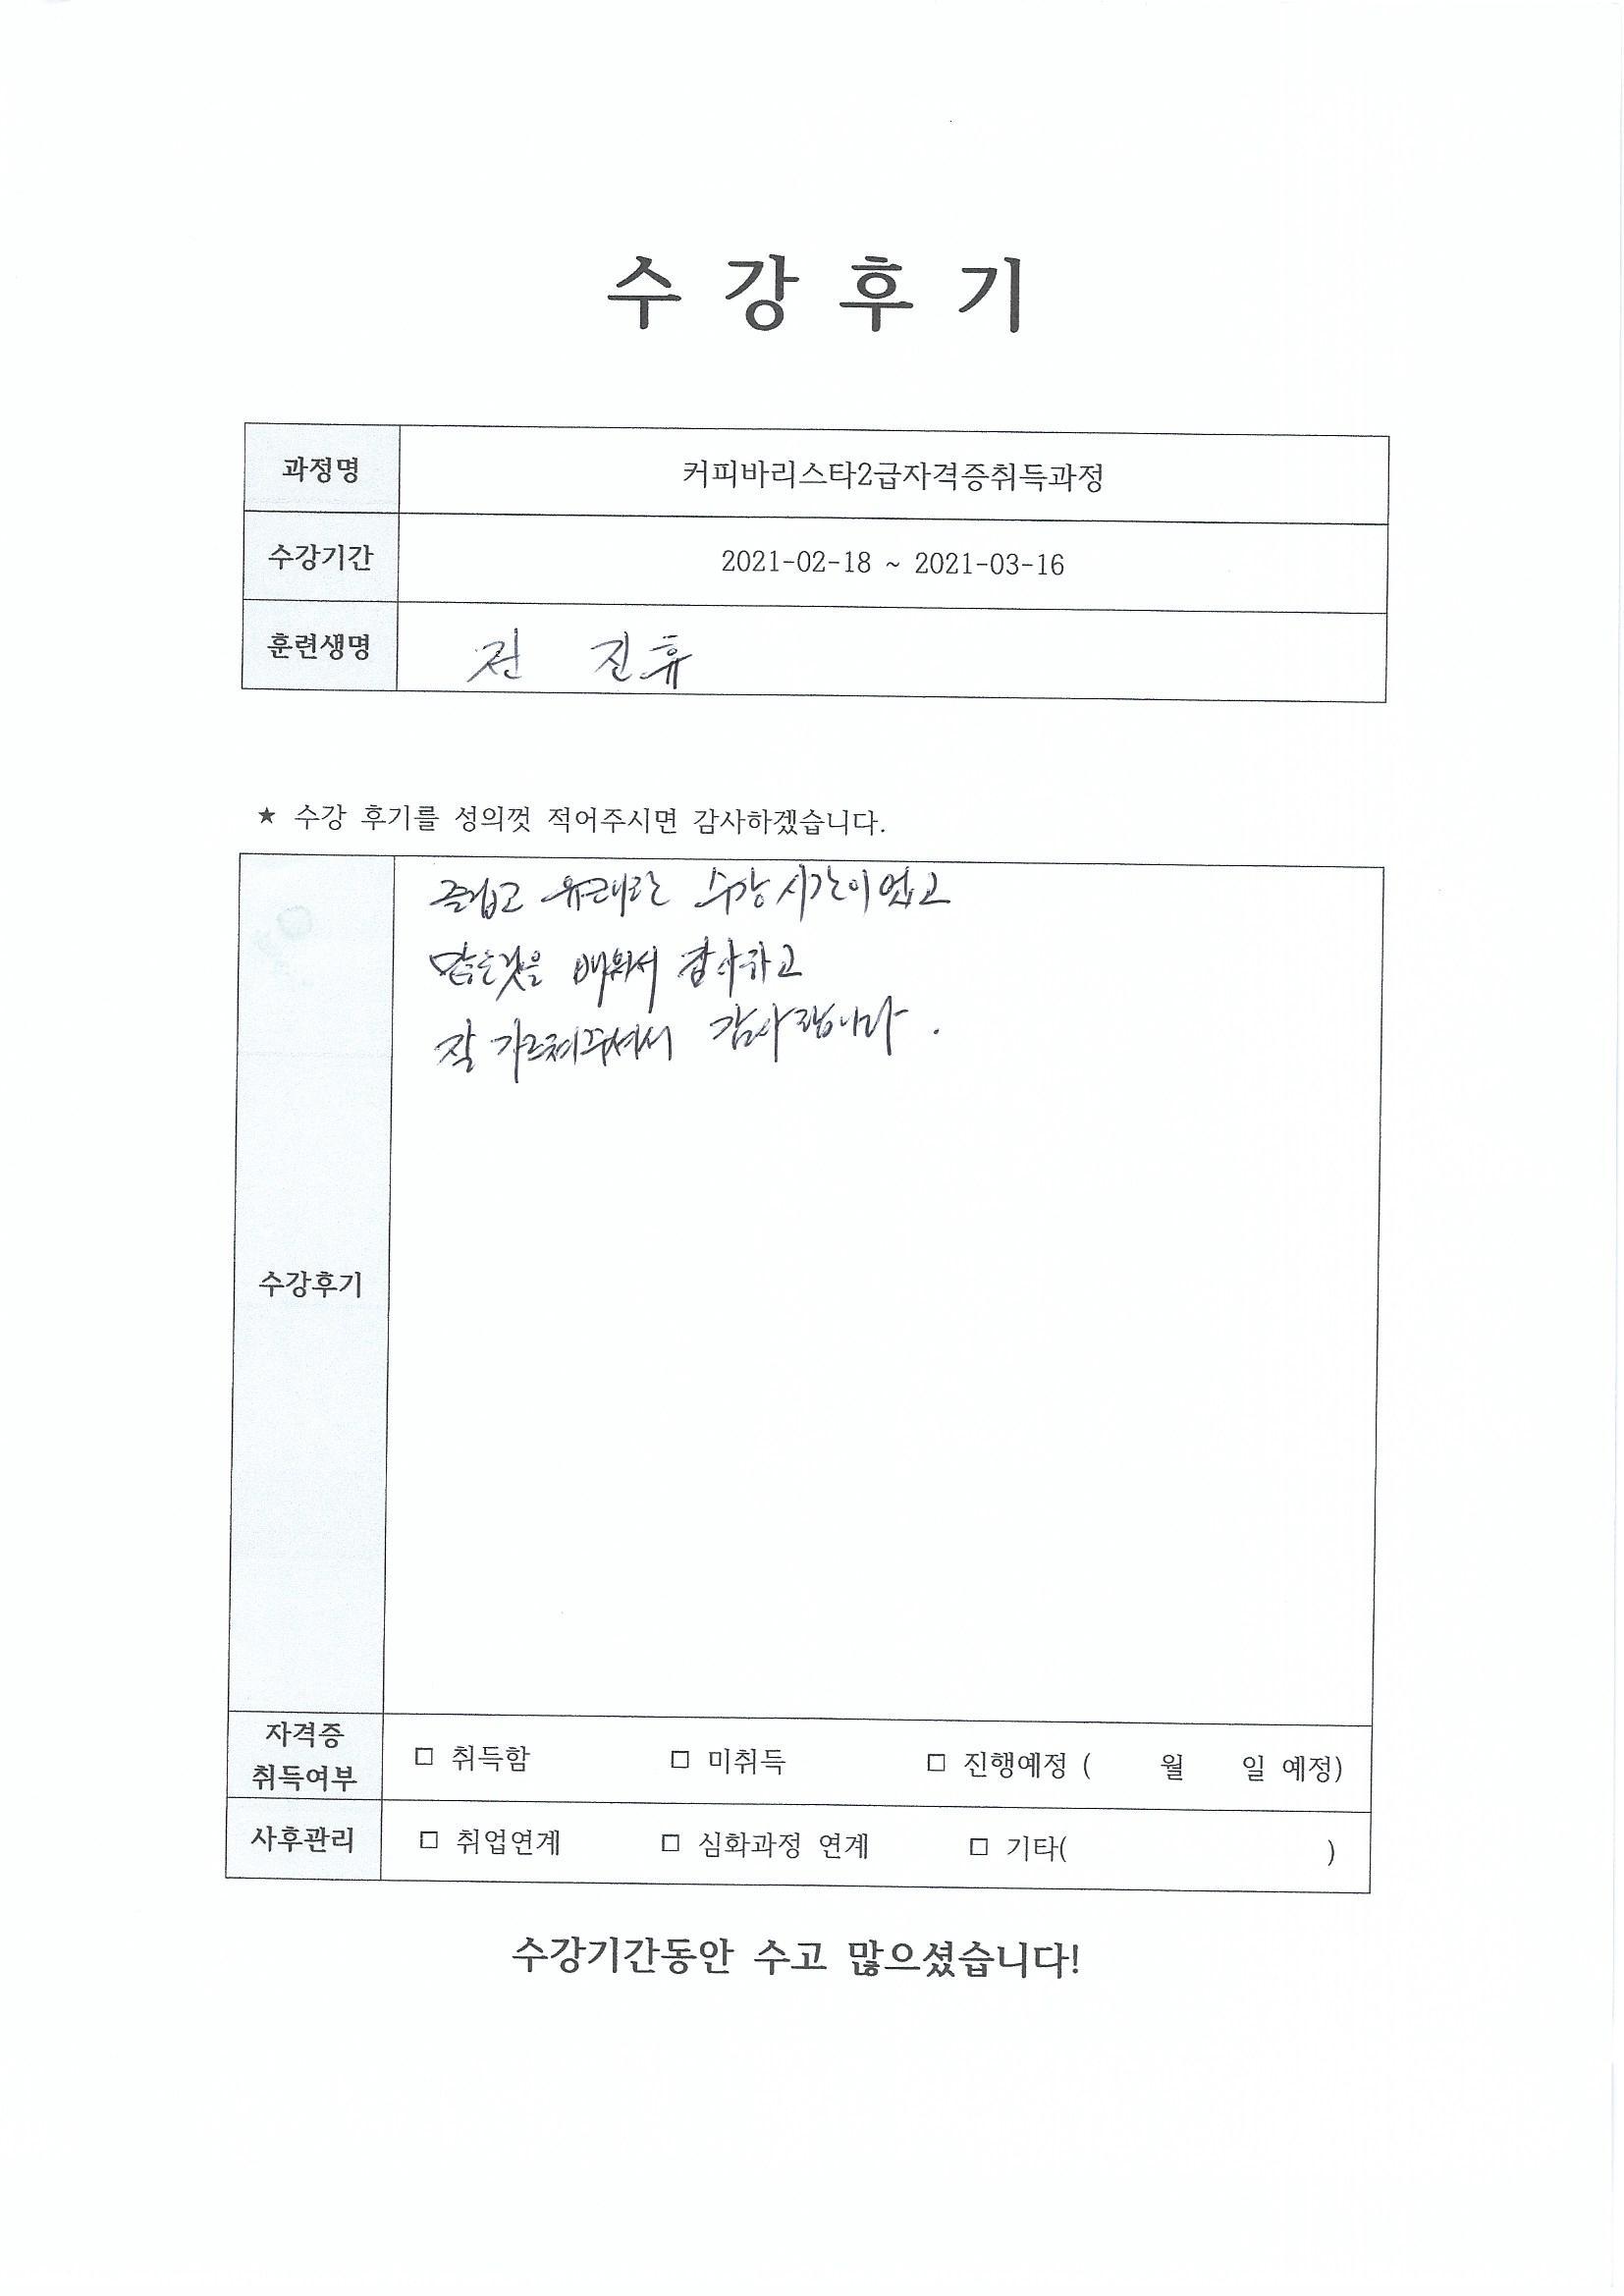 수 강 후 기
과정명 커피바리스타2급자격증취득과정
수강기간 2021-02-18 ~ 2021-03-16
훈련생명 전 진휴
★ 수강 후기를 성의껏 적어주시면 감사하겠습니다.
즐겁고 유쾌한 수강 시간이었고
많은것을 배워서 감사하고
잘 가르쳐주셔서 감사합니다.
수강후기
자격증
취득여부
□ 취득함 □ 미취득 □ 진행예정 ( 월 일 예정)
사후관리 □ 취업연계 □ 심화과정 연계 □ 기타( )
수강기간동안 수고 많으셨습니다!